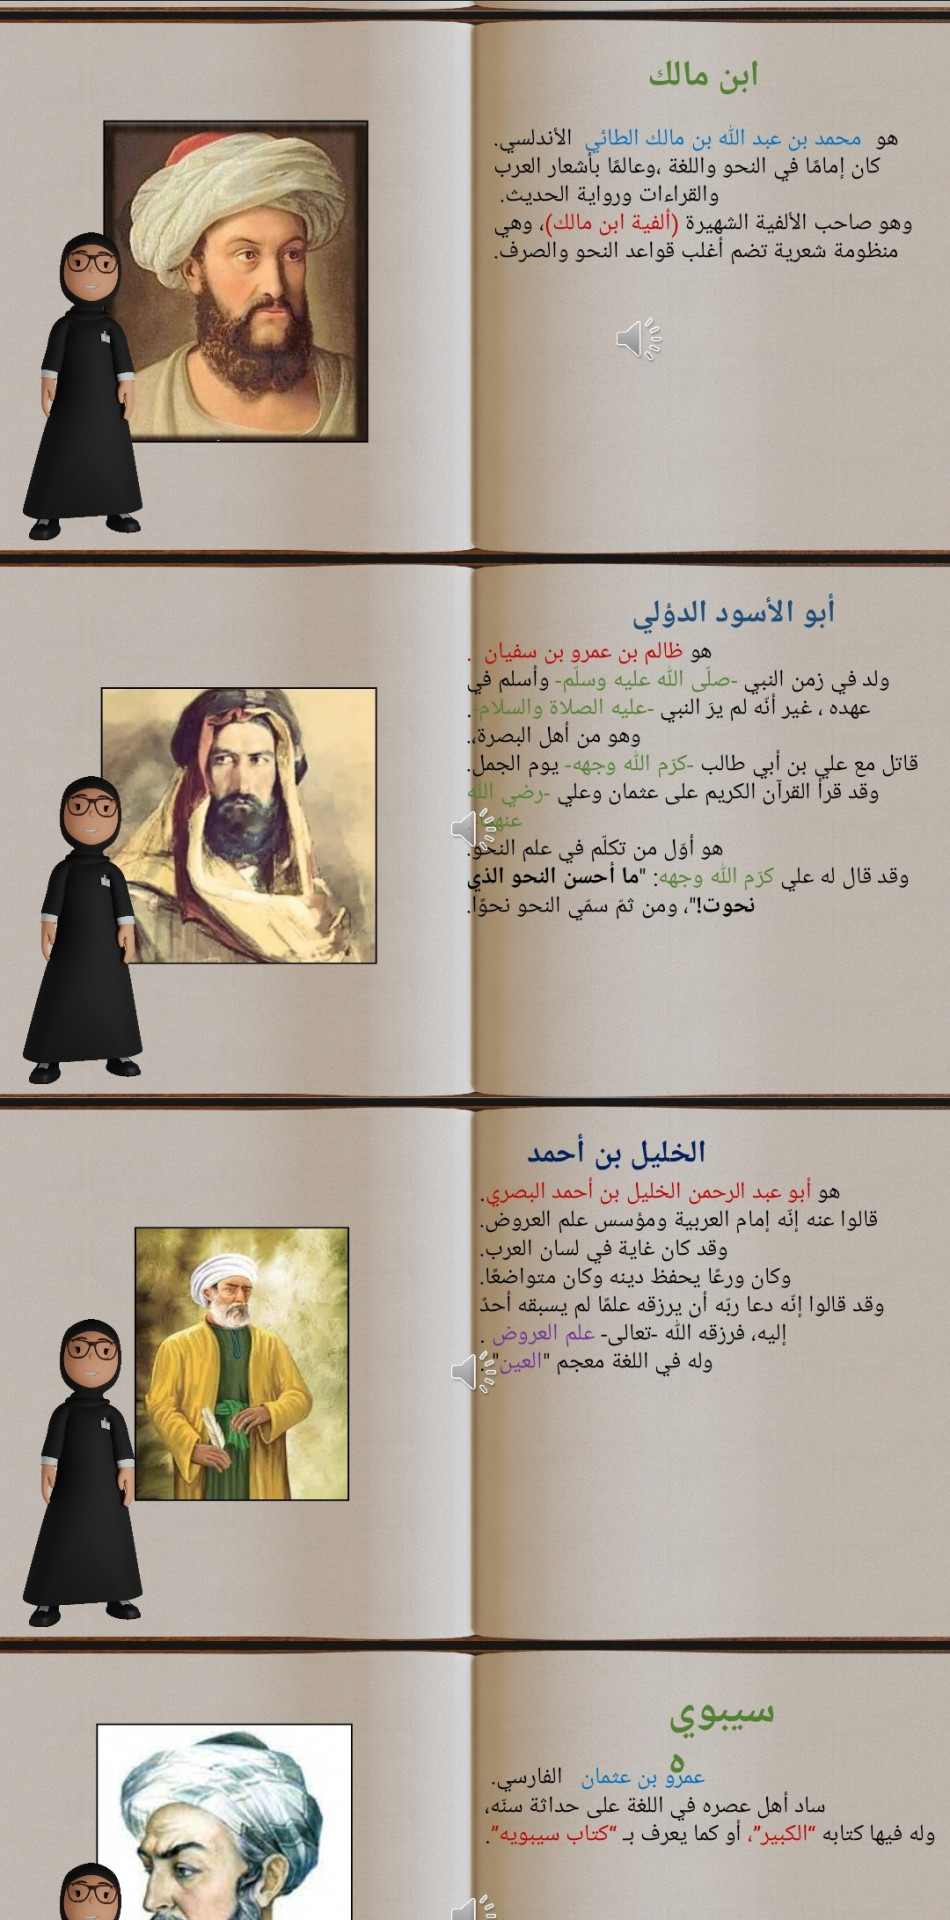 ابن مالك
هو محمد بن عبد الله بن مالك الطائي الأندلسي.
كان إمامًا في النحو واللغة ،وعالمًا بأشعار العرب
والقراءات ورواية الحديث.
وهو صاحب الألفية الشهيرة (ألفية ابن مالك)، وهي
منظومة شعرية تضم أغلب قواعد النحو والصرف.
أبو الأسود الدؤلي
هو ظالم بن عمرو بن سفيان .
ولد في زمن النبي -صلّى الله عليه وسلّم- وأسلم في
عهده ، غير أنّه لم يرَ النبي -عليه الصلاة والسلام-.
وهو من أهل البصرة،.
قاتل مع علي بن أبي طالب -كرّم الله وجهه- يوم الجمل.
وقد قرأ القرآن الكريم على عثمان وعلي -رضي الله
هو أوّل من تكلّم في علم النحو.
وقد قال له علي كرّم الله وجهه: "ما أحسن النحو الذي
نحوت!"، ومن ثمّ سمّي النحو نحوًا.
الخليل بن أحمد
هو أبو عبد الرحمن الخليل بن أحمد البصري.
قالوا عنه إنّه إمام العربية ومؤسس علم العروض.
وقد كان غاية في لسان العرب.
وكان ورعًا يحفظ دينه وكان متواضعًا.
وقد قالوا إنّه دعا ربّه أن يرزقه علمًا لم يسبقه أحدٌ
إليه، فرزقه الله -تعالى- علم العروض .
وله في اللغة معجم "العين".
سيبوي
ه
عمرو بن عثمان الفارسي.
ساد أهل عصره في اللغة على حداثة سنّه،
وله فيها كتابه “الكبير”، أو كما يعرف بـ “كتاب سيبويه”.